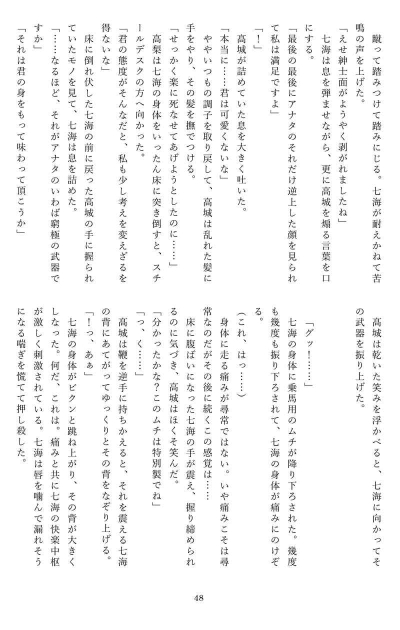 蹴って踏みつけて踏みにじる。七海が耐えかねて苦
鳴の声を上げた。
「えせ紳士面がようやく剥がれましたね」
七海は息を弾ませながら、更に高城を煽る言葉を口
にする。
「最後の最後にアナタのそれだけ逆上した顔を見られ
て私は満足ですよ」
「！」
高城が詰めていた息を大きく吐いた。
「本当に……君は可愛くないな」
ややいつもの調子を取り戻して、高城は乱れた髪に
手をやり、その髪を撫でつける。
「せっかく楽に死なせてあげようとしたのに……」
高梨は七海の身体をいったん床に突き倒すと、スチ
ールデスクの方へ向かった。
「君の態度がそんなだと、私も少し考えを変えざるを
得ないな」
床に倒れ伏した七海の前に戻った高城の手に握られ
ていたモノを見て、七海は息を詰めた。
「……なるほど、それがアナタのいわば窮極の武器で
すか」
「それは君の身をもって味わって頂こうか」
高城は乾いた笑みを浮かべると、七海に向かってそ
の武器を振り上げた。
「グッ！……」
七海の身体に乗馬用のムチが降り下ろされた。幾度
も幾度も振り下ろされて、七海の身体が痛みにのけぞ
る。
（これ、はっ……）
身体に走る痛みが尋常ではない。いや痛みこそは尋
常なのだがその後に続くこの感覚は……
床に腹ばいになった七海の手が震え、握り締められ
るのに気づき、高城はほくそ笑んだ。
「分かったかな？このムチは特別製でね」
「っ、く……」
高城は鞭を逆手に持ちかえると、それを震える七海
の背にあてがってゆっくりとその背をなぞり上げる。
「！っ、あぁ」
七海の身体がビクンと跳ね上がり、その背が大きく
しなった。何だ、これは。痛みと共に七海の快楽中枢
が激しく刺激されている。七海は唇を噛んで漏れそう
になる喘ぎを慌てて押し殺した。
48